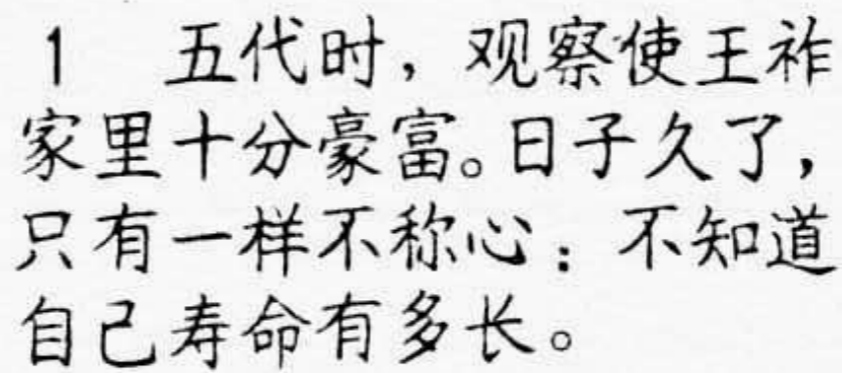 1 五代时，观察使王祚
家里十分豪富。日子久了，
只有一样不称心：不知道
自己寿命有多长。